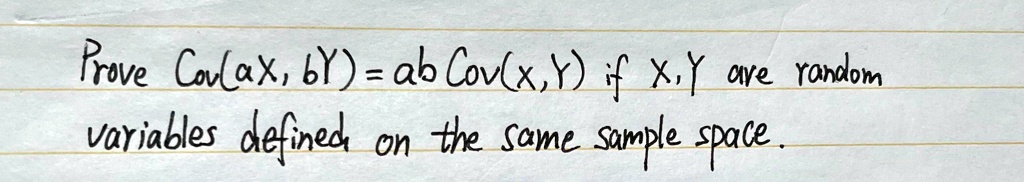 Prove Cov(aX, bY) = ab Cov(X,Y) if X,Y are random
variables defined on the same sample space.